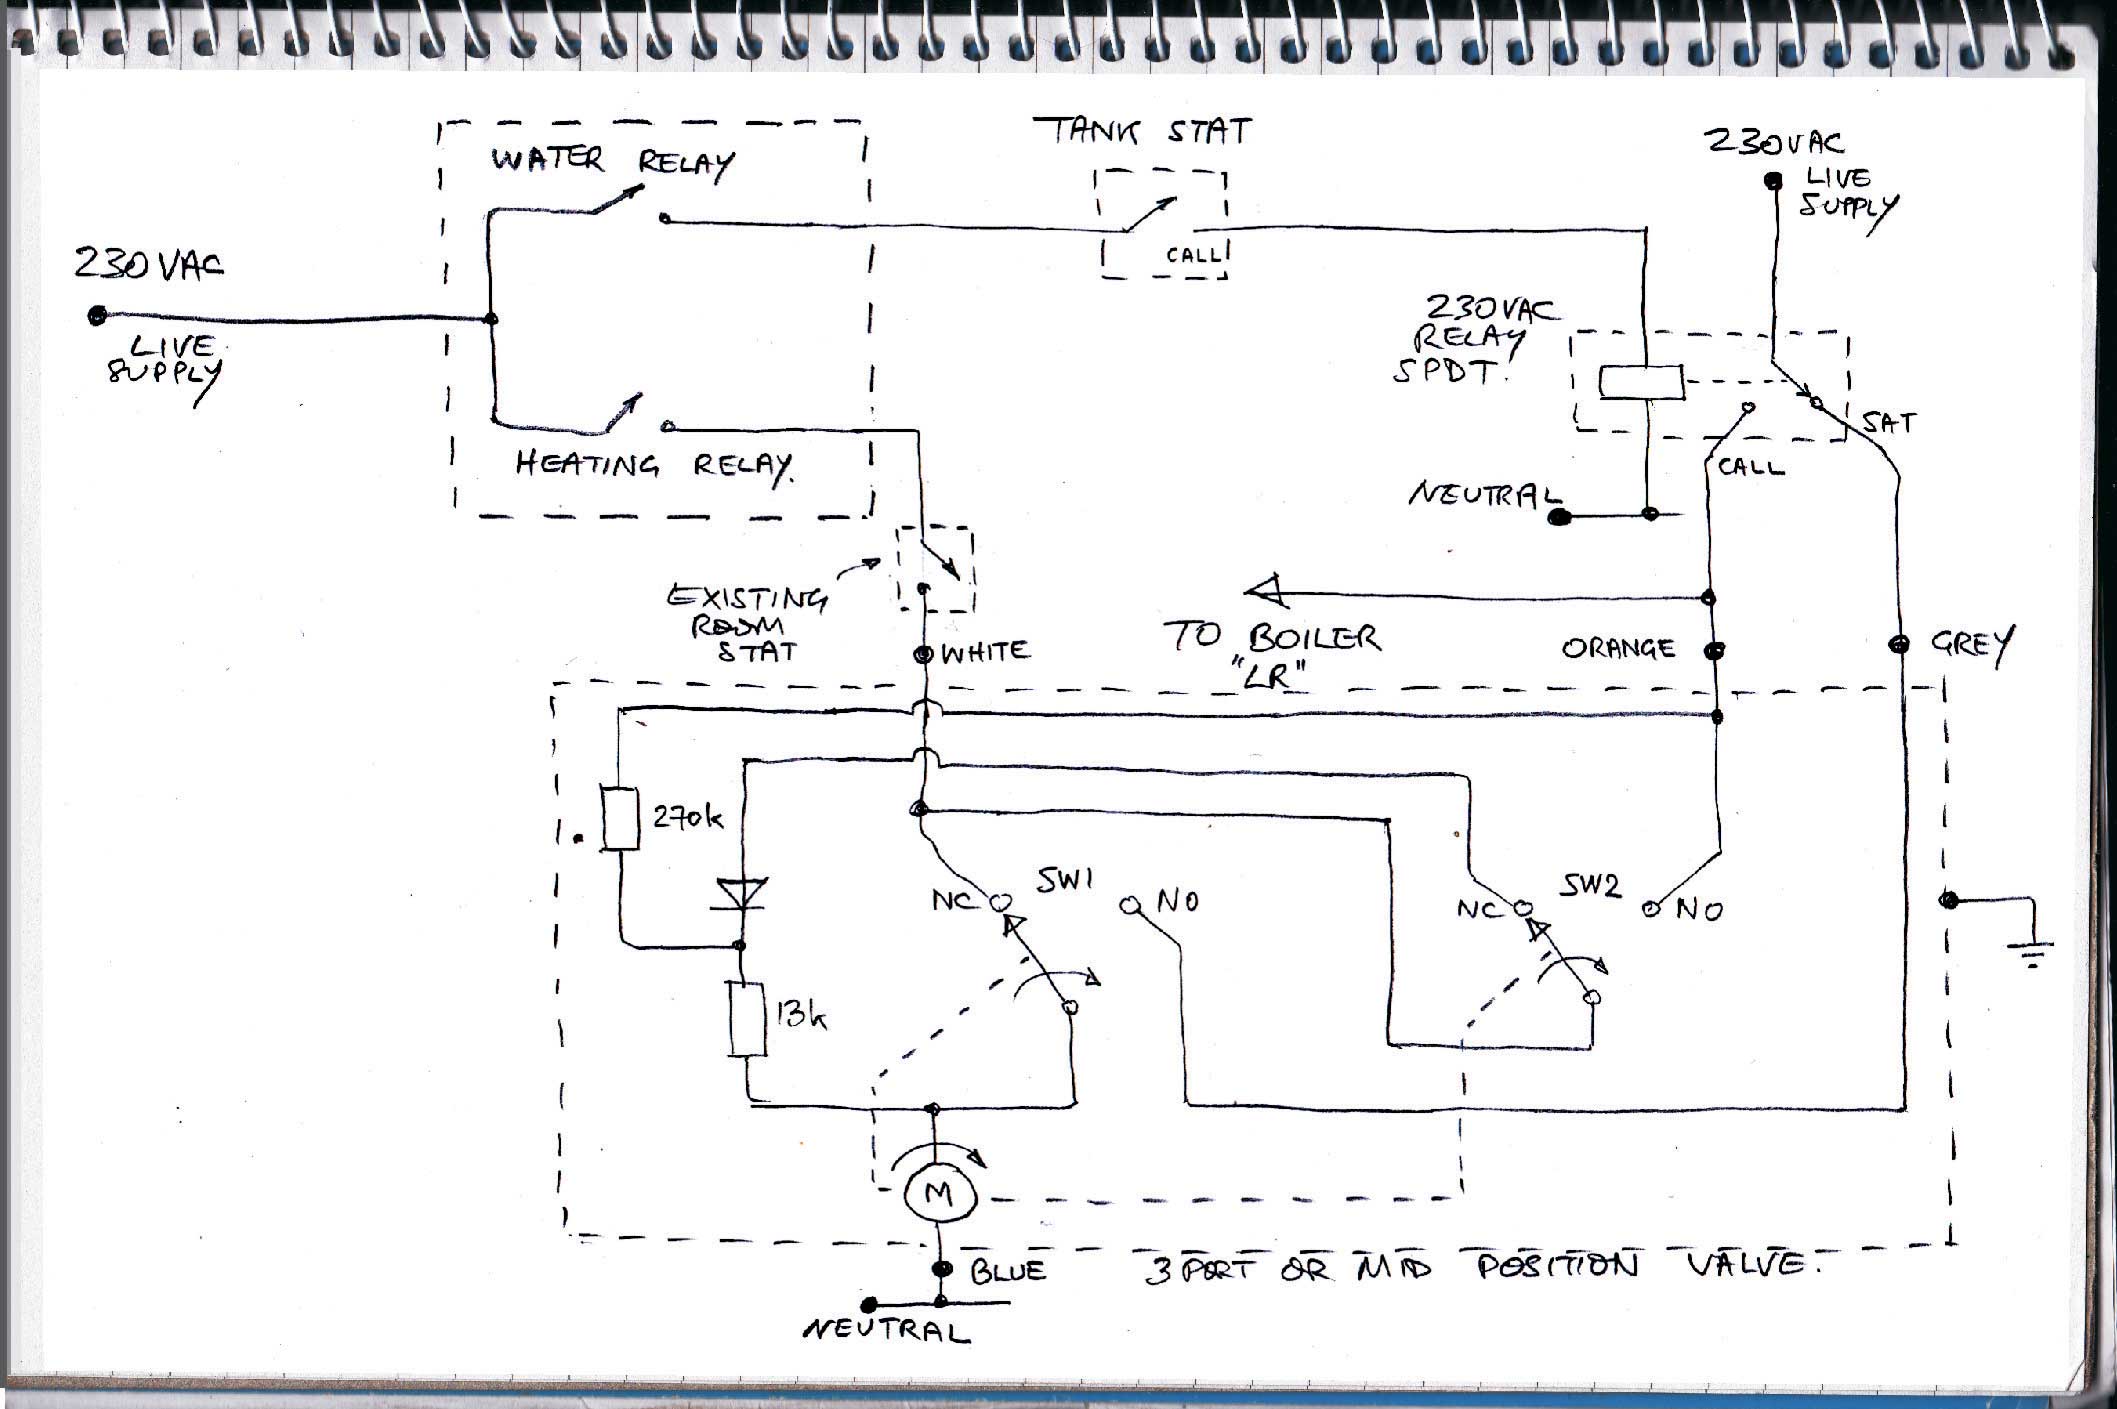 TANK STAT
230VAC
LIVE
SUPPLY
WATER RELAY
230VAC
LIVE
SUPPLY
CALL
230VAC
RELAY
SPDT.
SAT
CALL
HEATING RELAY.
NEUTRAL
EXISTING
ROOM
STAT
WHITE
TO BOILER
"LR"
ORANGE
GREY
270k
NC
SW1
NO
NC
SW2
NO
13k
M
BLUE
3 PORT OR MID POSITION VALVE.
NEUTRAL